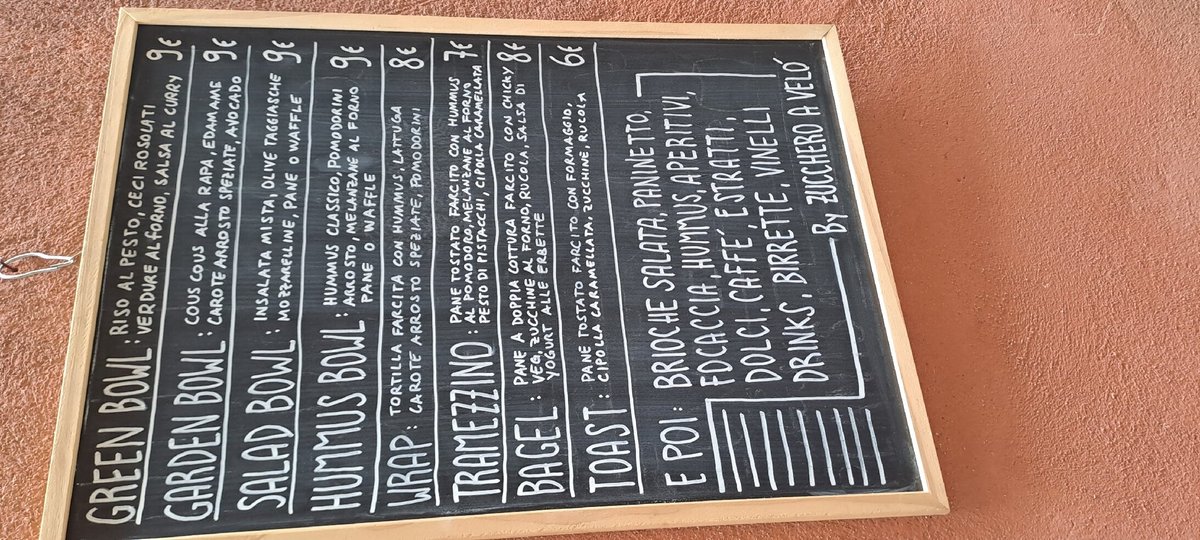 GREEN BOWL: RISO AL PESTO, CECI ROSOLATI 9€
VERDURE AL FORNO, SALSA AL CURRY
GARDEN BOWL: COUS COUS ALLA RAPA, EDAMAME 9€
CAROTE ARROSTO SPEZIATE, AVOCADO
SALAD BOWL: INSALATA MISTA, OLIVE TAGGIASCHE 9€
MOZZARELLINE, PANE O WAFFLE
HUMMUS BOWL: HUMMUS CLASSICO, POMODORINI 9€
ARROSTO, MELANZANE AL FORNO
PANE O WAFFLE
WRAP: TORTILLA FARCITA CON HUMMUS, LATTUGA 8€
CAROTE ARROSTO SPEZIATE, POMODORINI
TRAMEZZINO: PANE TOSTATO FARCITO CON HUMMUS 7€
AL POMODORO, MELANZANE AL FORNO
PESTO DI PISTACCHI, CIPOLLA CARAMELLATA
BAGEL: PANE A DOPPIA COTTURA FARCITO CON CHICKY 8€
VEG, ZUCCHINE AL FORNO, RUCOLA, SALSA DI
YOGURT ALLE ERBETTE
TOAST: PANE TOSTATO FARCITO CON FORMAGGIO, 6€
CIPOLLA CARAMELLATA, ZUCCHINE, RUCOLA
E POI: BRIOCHE SALATA, PANINETTO,
FOCACCIA, HUMMUS APERITIVI,
DOLCI, CAFFE', ESTRATTI,
DRINKS, BIRRETTE, VINELLI
By ZUCCHERO A VELÓ